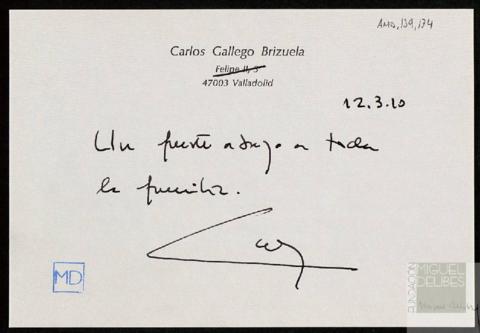 AMD, 139, 174
Carlos Gallego Brizuela
Felipe II, 3
47003 Valladolid
12.3.10
Un fuerte abrazo a toda
la familia.
MD
FUNDACIÓN
MIGUEL
DELIBES